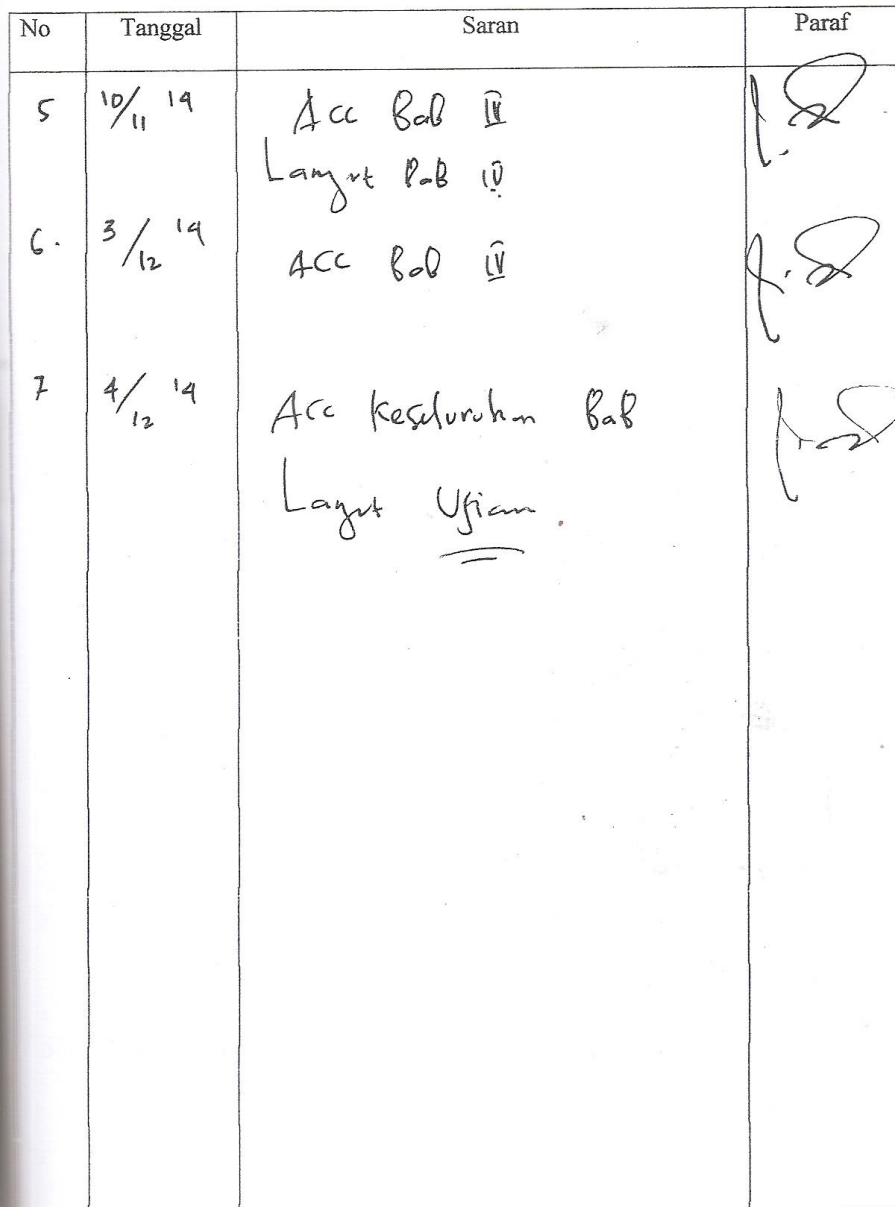 No Tanggal Saran Paraf
5 10/11 14 Acc Bab III
Lanjut Bab IV
6. 3/12 14 ACC Bab IV
7 4/12 14 Acc Keseluruhan Bab
Lanjut Ujian.